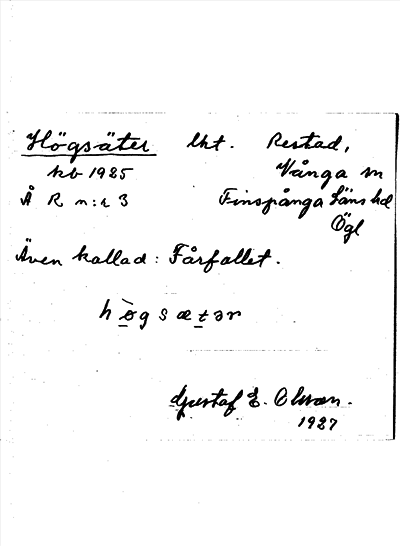 Högsäter lht. Restad,
kb 1925 Vånga sn
Å R n:r 3 Finspånga läns hd
Ögl
Även kallad: Fårfallet.
högsætər
Gustaf E. Olsson.
1927